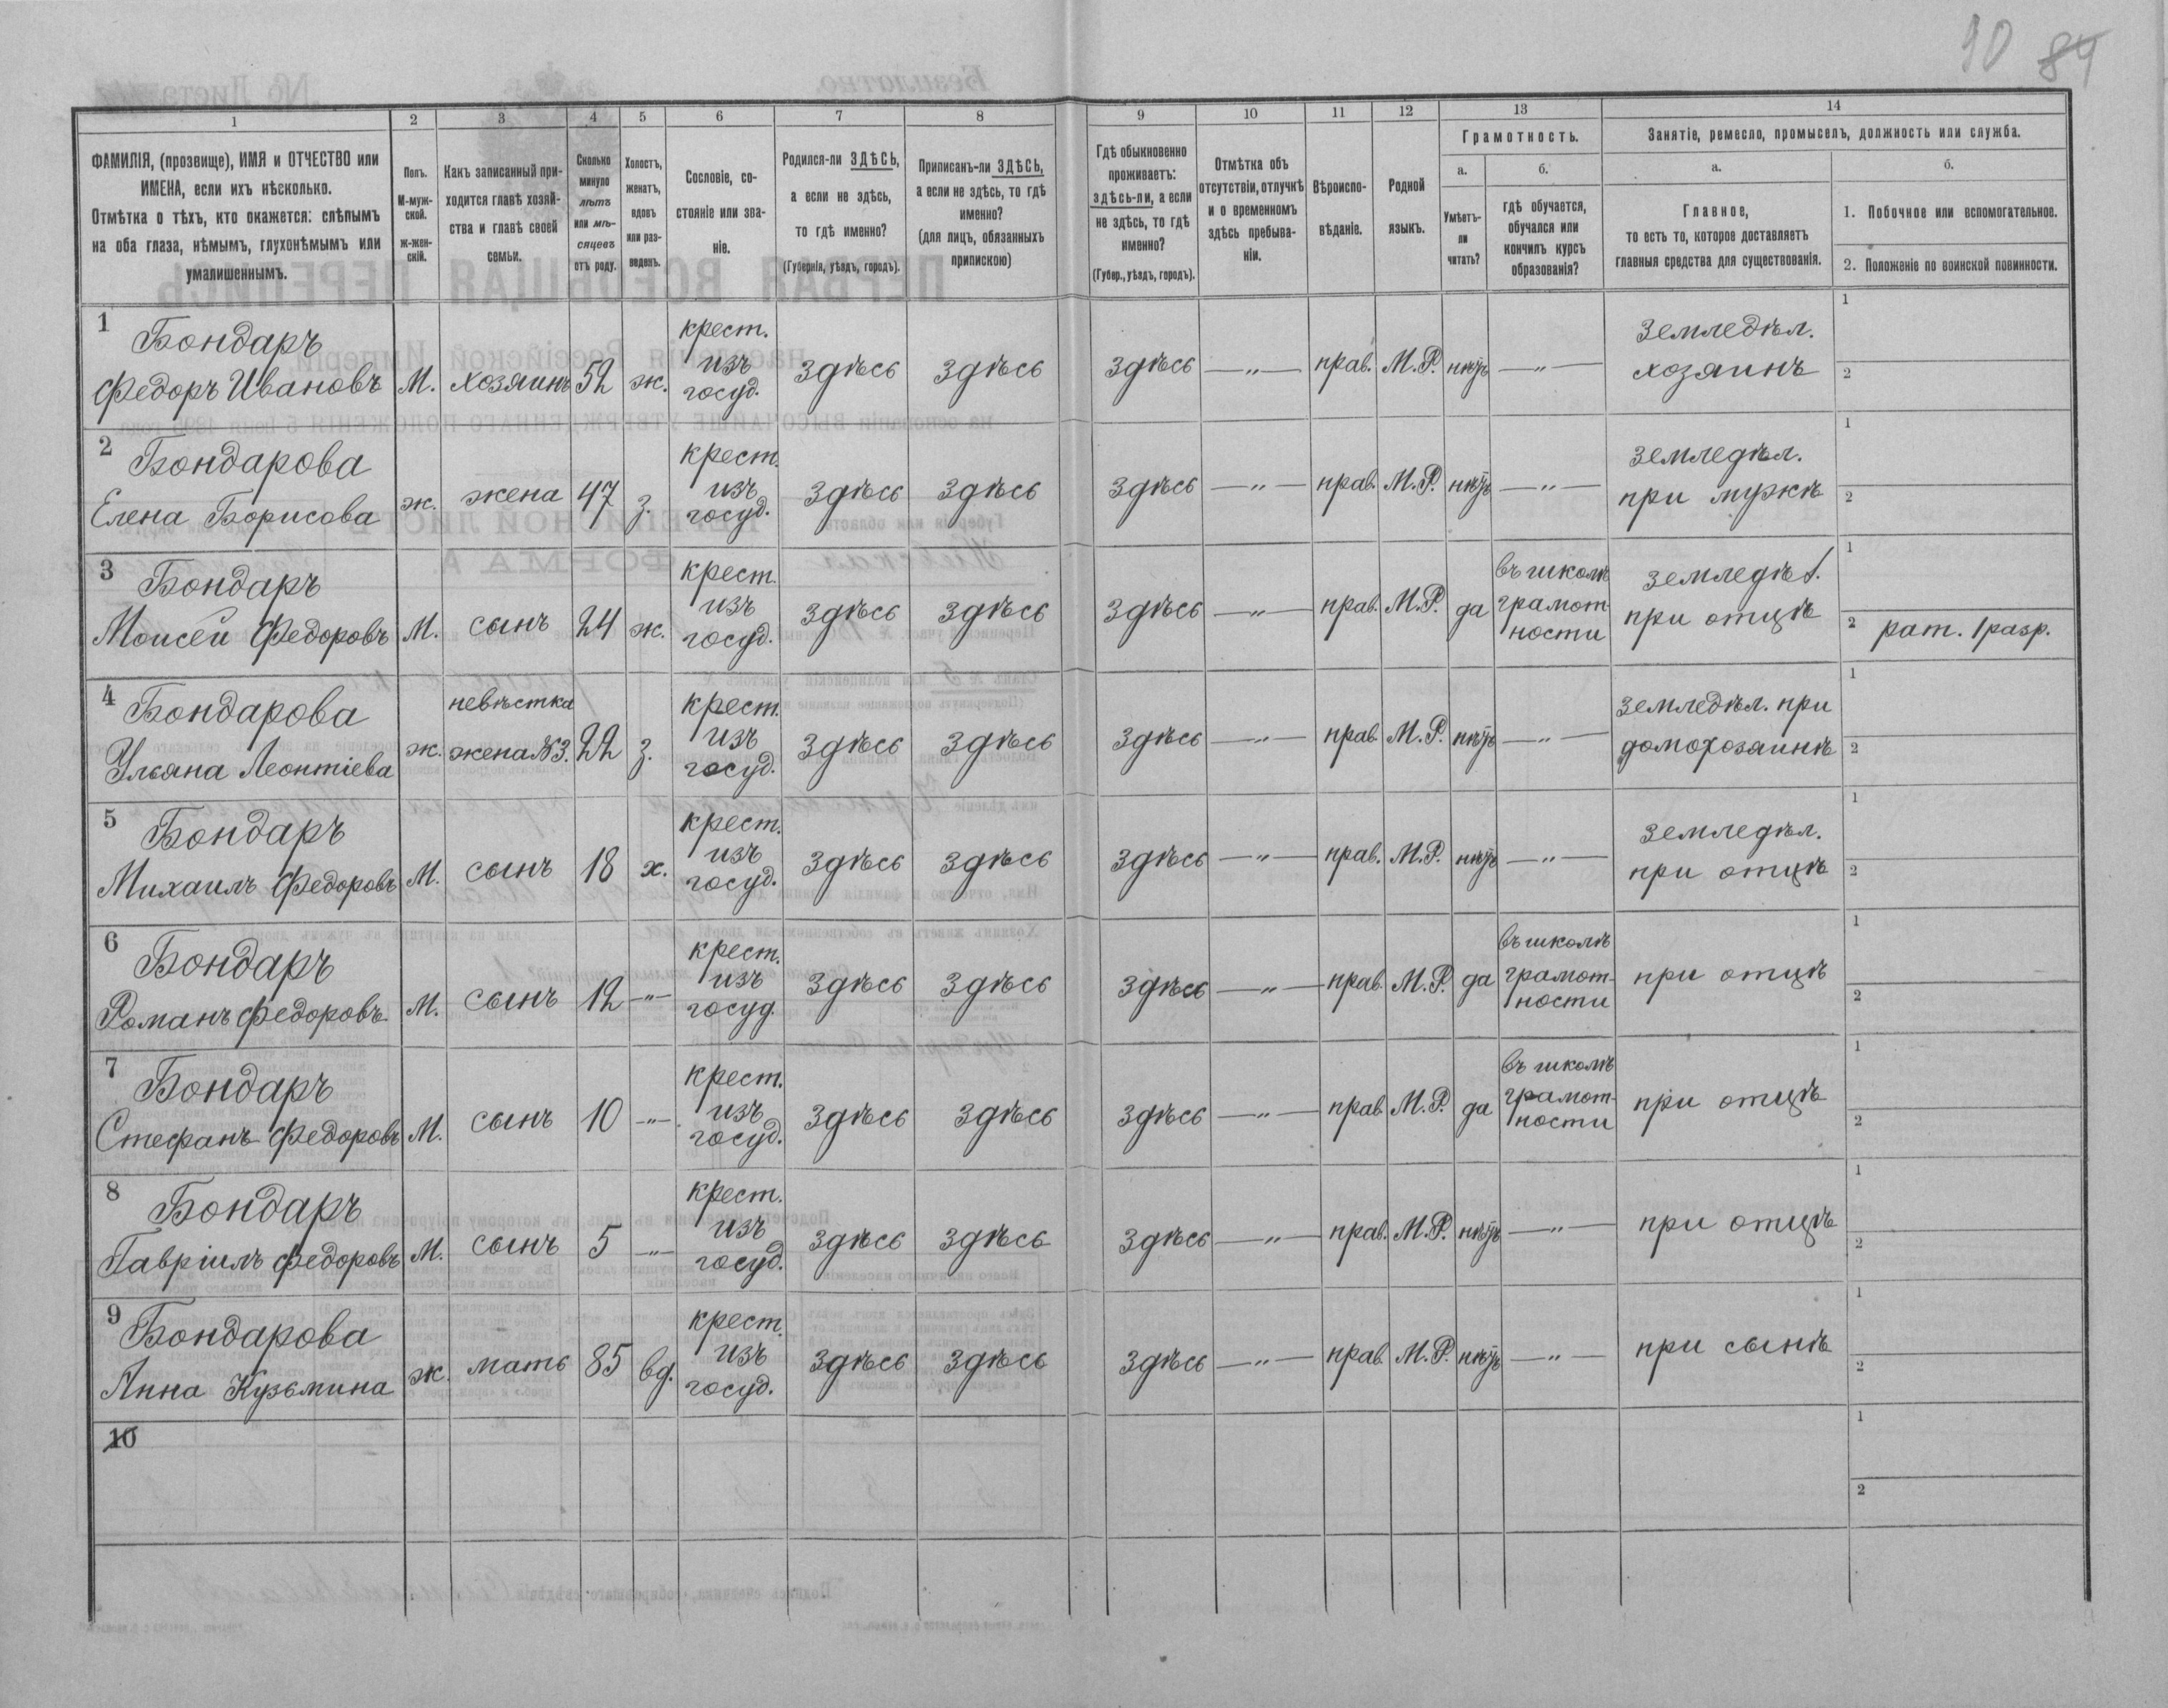 90 84
1 2 3 4 5 6 7 8 9 10 11 12 13 14
ФАМИЛІЯ, (прозвище), ИМЯ и ОТЧЕСТВО или
ИМЕНА, если ихъ нѣсколько.
Отмѣтка о тѣхъ, кто окажется: слѣпымъ
на оба глаза, нѣмымъ, глухонѣмымъ или
умалишеннымъ.
Полъ.
М-муж-
ской.
ж-жен-
скій.
Какъ записанный при-
ходится главѣ хозяй-
ства и главѣ своей
семьи.
Сколько
минуло
лѣтъ
или мѣ-
сяцевъ
отъ роду.
Холостъ,
женатъ,
вдовъ
или раз-
веденъ.
Сословіе, со-
стояніе или зва-
ніе.
Родился-ли ЗДѢСЬ,
а если не здѣсь,
то гдѣ именно?
(Губернія, уѣздъ, городъ).
Приписанъ-ли ЗДѢСЬ,
а если не здѣсь, то гдѣ
именно?
(для лицъ, обязанныхъ
припискою)
Гдѣ обыкновенно
проживаетъ:
здѣсь-ли, а если
не здѣсь, то гдѣ
именно?
(Губер., уѣздъ, городъ).
Отмѣтка объ
отсутствіи, отлучкѣ
и о временномъ
здѣсь пребыва-
ніи.
Вѣроиспо-
вѣданіе.
Родной
языкъ.
Грамотность.
а.
Умѣетъ-
ли
читать?
б.
гдѣ обучается,
обучался или
кончилъ курсъ
образованія?
Занятіе, ремесло, промыселъ, должность или служба.
а.
Главное,
то есть то, которое доставляетъ
главныя средства для существованія.
б.
1. Побочное или вспомогательное.
2. Положеніе по воинской повинности.
1 Бондаръ
Федоръ Ивановъ М. хозяинъ 52 ж.
крест.
изъ
госуд.
здѣсь здѣсь здѣсь —„— прав. М.Р. нѣтъ —„—
земледѣл.
хозяинъ
1
2
2 Бондарова
Елена Борисова ж. жена 47 з.
крест.
изъ
госуд.
здѣсь здѣсь здѣсь —„— прав. М.Р. нѣтъ —„—
земледѣл.
при мужѣ
1
2
3 Бондаръ
Моисей Федоровъ М. сынъ 24 ж.
крест.
изъ
госуд.
здѣсь здѣсь здѣсь —„— прав. М.Р. да
въ школѣ
грамот-
ности
земледѣл.
при отцѣ
1
2 рат. 1 разр.
4 Бондарова
Ульяна Леонтіева ж.
невѣстка
жена №3. 22 з.
крест.
изъ
госуд.
здѣсь здѣсь здѣсь —„— прав. М.Р. нѣтъ —„—
земледѣл. при
домохозяинѣ
1
2
5 Бондаръ
Михаилъ Федоровъ М. сынъ 18 х.
крест.
изъ
госуд.
здѣсь здѣсь здѣсь —„— прав. М.Р. нѣтъ —„—
земледѣл.
при отцѣ
1
2
6 Бондаръ
Романъ Федоровъ М. сынъ 12 —„—
крест.
изъ
госуд.
здѣсь здѣсь здѣсь —„— прав. М.Р. да
въ школѣ
грамот-
ности
при отцѣ
1
2
7 Бондаръ
Стефанъ Федоровъ М. сынъ 10 —„—
крест.
изъ
госуд.
здѣсь здѣсь здѣсь —„— прав. М.Р. да
въ школѣ
грамот-
ности
при отцѣ
1
2
8 Бондаръ
Гавріилъ Федоровъ М. сынъ 5 —„—
крест.
изъ
госуд.
здѣсь здѣсь здѣсь —„— прав. М.Р. нѣтъ —„—
при отцѣ
1
2
9 Бондарова
Анна Кузьмина ж. мать 85 вд.
крест.
изъ
госуд.
здѣсь здѣсь здѣсь —„— прав. М.Р. нѣтъ —„—
при сынѣ
1
2
10
1
2